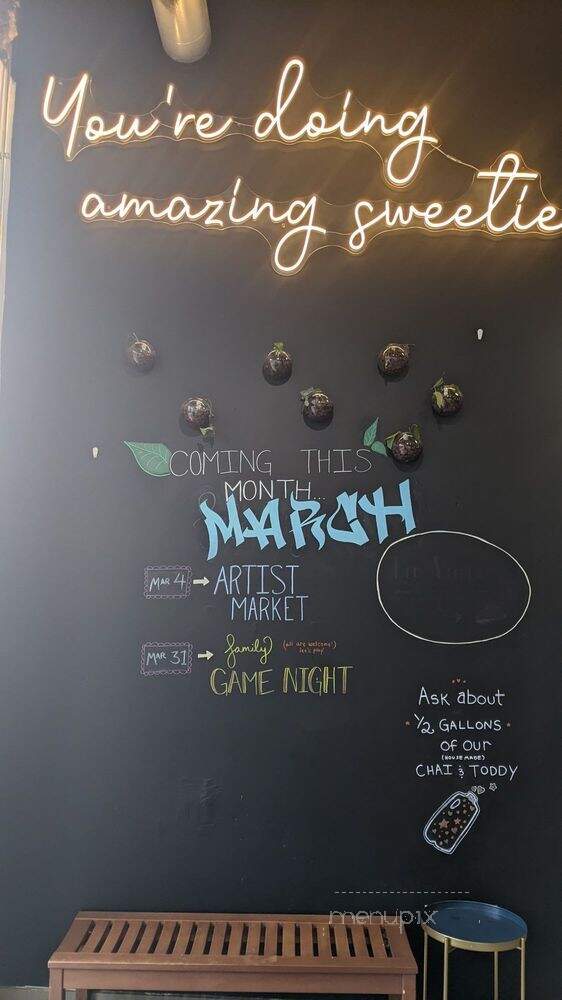 You're doing
amazing sweetie
COMING THIS
MONTH...
MARCH
MAR 4
ARTIST
MARKET
MAR 31
family
(all are welcome!)
let's play!
GAME NIGHT
ASK about
1/2 GALLONS
OF OUR
(HOUSE MADE)
CHAI & TODDY
menupix